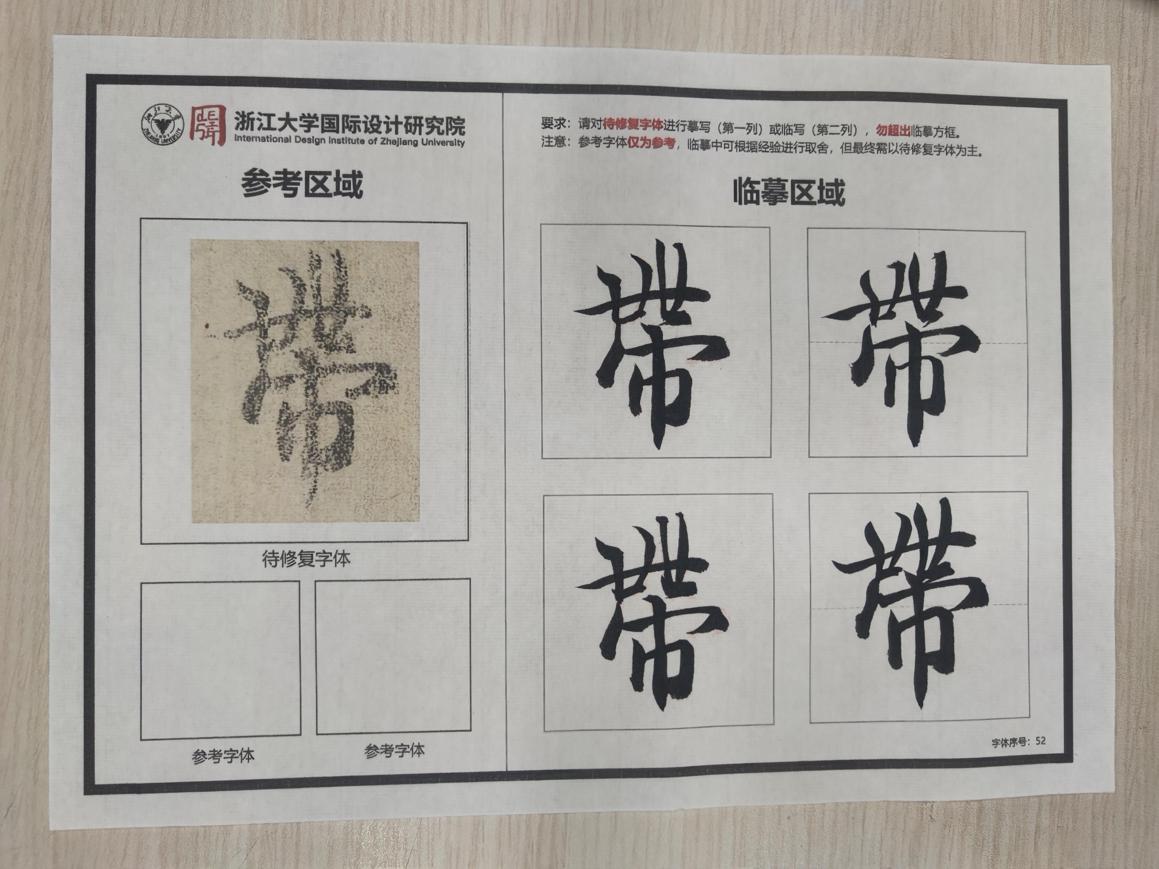 浙江大学国际设计研究院
International Design Institute of Zhejiang University
参考区域
帶
待修复字体
参考字体
参考字体
要求：请对待修复字体进行摹写（第一列）或临写（第二列），勿超出临摹方框。
注意：参考字体仅为参考，临摹中可根据经验进行取舍，但最终需以待修复字体为主。
临摹区域
帶 帶
帶 帶
字体序号：52